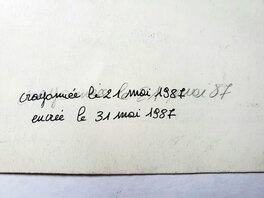 crayonnée le 21 mai 1987
encrée le 31 mai 1987